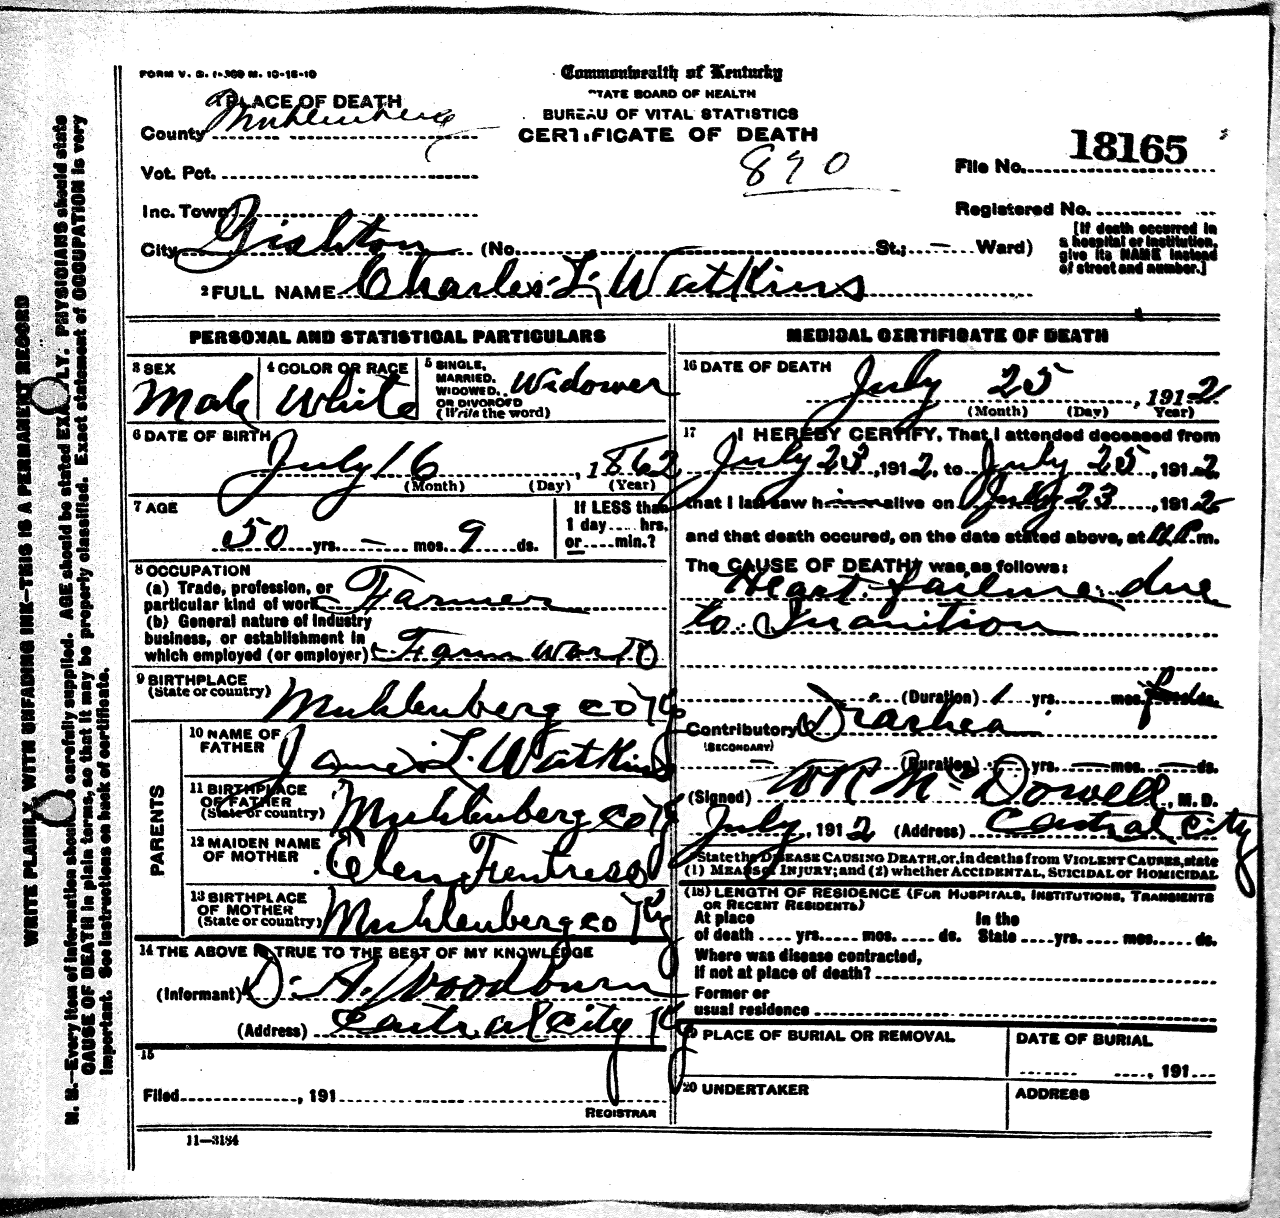 FORM V. S. 1-300 M. 10-16-10
Commonwealth of Kentucky
STATE BOARD OF HEALTH
BUREAU OF VITAL STATISTICS
CERTIFICATE OF DEATH
890
1 PLACE OF DEATH
County Muhlenberg
Vot. Pct.
Inc. Town
City Gishton (No. St.; — Ward)
File No. 18165
Registered No.
[If death occurred in
a hospital or institution,
give its NAME instead
of street and number.]
2 FULL NAME Charles L. Watkins
PERSONAL AND STATISTICAL PARTICULARS
3 SEX
Male
4 COLOR OR RACE
White
5 SINGLE,
MARRIED,
WIDOWED,
OR DIVORCED
(Write the word)
Widower
6 DATE OF BIRTH
July 16, 1862
(Month) (Day) (Year)
7 AGE
50 yrs. — mos. 9 ds.
If LESS than
1 day .... hrs.
or ..... min.?
8 OCCUPATION
(a) Trade, profession, or
particular kind of work Farmer
(b) General nature of industry
business, or establishment in
which employed (or employer) Farm work
9 BIRTHPLACE
(State or country) Muhlenberg co Ky
PARENTS
10 NAME OF
FATHER James L. Watkins
11 BIRTHPLACE
OF FATHER
(State or country) Muhlenberg co Ky
12 MAIDEN NAME
OF MOTHER Elen Fentress
13 BIRTHPLACE
OF MOTHER
(State or country) Muhlenberg co Ky
14 THE ABOVE IS TRUE TO THE BEST OF MY KNOWLEDGE
(Informant) D. A. Woodburn
(Address) Central City Ky
15
Filed , 191
REGISTRAR
11—3184
MEDICAL CERTIFICATE OF DEATH
16 DATE OF DEATH
July 25, 1912
(Month) (Day) Year)
17 I HEREBY CERTIFY, That I attended deceased from
July 23, 1912, to July 25, 1912
that I last saw him alive on July 23, 1912
and that death occured, on the date stated above, at m.
The CAUSE OF DEATH was as follows:
Heart failure due
to Inanition
(Duration) 1 yrs. mos.
Contributory Diarhea
(SECONDARY)
— (Duration) — yrs. — mos. — ds.
(Signed) W R McDowell, M. D.
July, 1912 (Address) Central City
State the DISEASE CAUSING DEATH, or, in deaths from VIOLENT CAUSES, state
(1) MEANS OF INJURY; and (2) whether ACCIDENTAL, SUICIDAL or HOMICIDAL
(18) LENGTH OF RESIDENCE (FOR HOSPITALS, INSTITUTIONS, TRANSIENTS
OR RECENT RESIDENTS)
At place In the
of death .... yrs. .... mos. .... ds. State .... yrs. .... mos. .... ds.
Where was disease contracted,
if not at place of death?
Former or
usual residence
19 PLACE OF BURIAL OR REMOVAL
DATE OF BURIAL
, 191
20 UNDERTAKER
ADDRESS
WRITE PLAINLY, WITH UNFADING INK—THIS IS A PERMANENT RECORD
N. B.—Every item of information should be carefully supplied. AGE should be stated EXACTLY. PHYSICIANS should state
CAUSE OF DEATH in plain terms, so that it may be properly classified. Exact statement of OCCUPATION is very
important. See instructions on back of certificate.